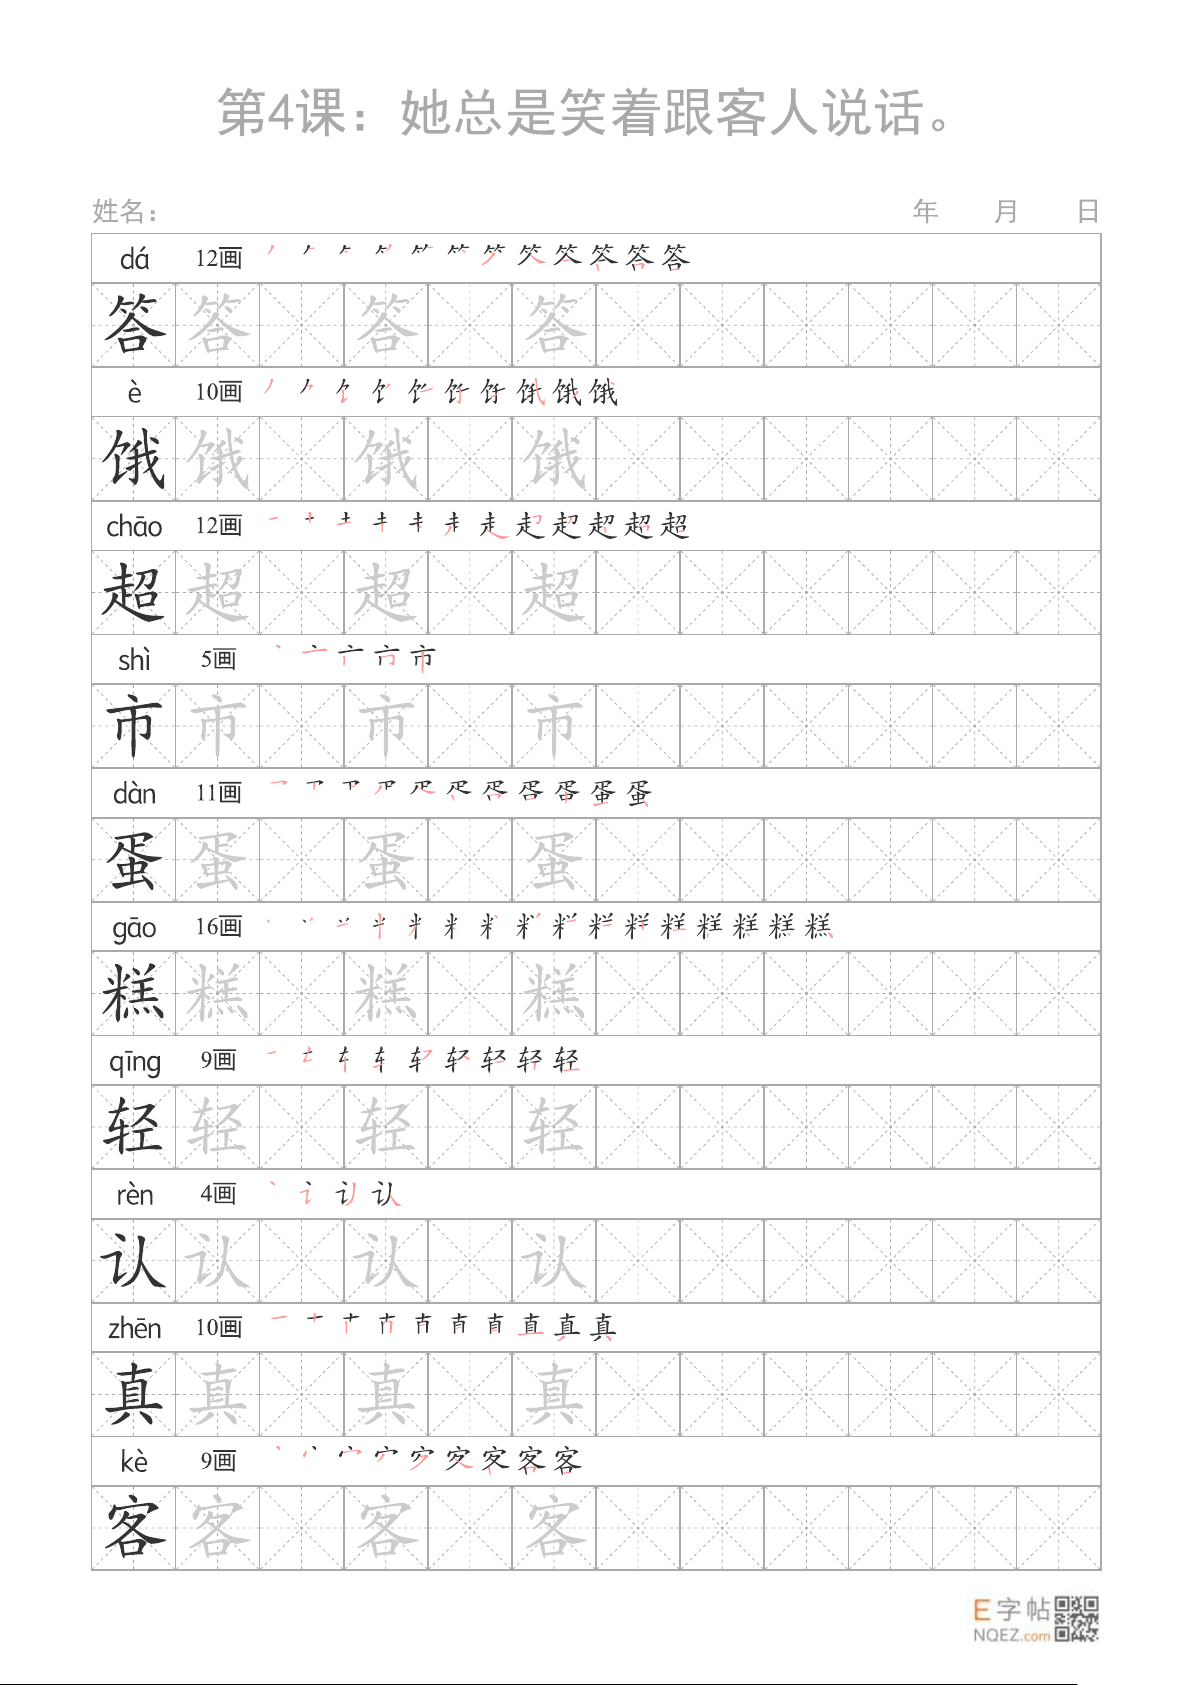 第4课：她总是笑着跟客人说话。
姓名： 年 月 日
dá 12画
答 答 答 答
è 10画
饿 饿 饿 饿
chāo 12画
超 超 超 超
shì 5画
市 市 市 市
dàn 11画
蛋 蛋 蛋 蛋
gāo 16画
糕 糕 糕 糕
qīng 9画
轻 轻 轻 轻
rèn 4画
认 认 认 认
zhēn 10画
真 真 真 真
kè 9画
客 客 客 客
E字帖
NQEZ.com